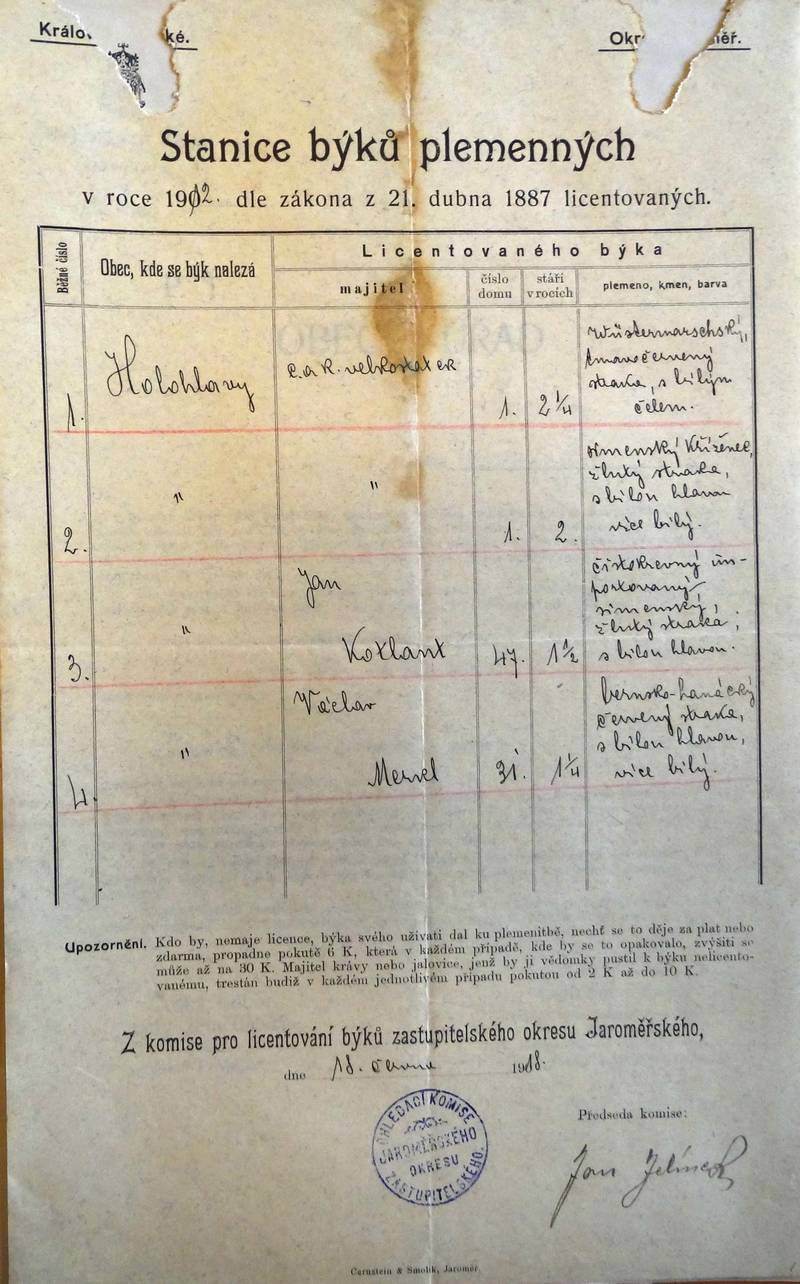 Králov
ké.
Okr
měř.
Stanice býků plemenných
v roce 1912. dle zákona z 21. dubna 1887 licentovaných.
Běžné číslo
Obec, kde se býk nalezá
Licentovaného býka
majitel
číslo domu
stáří v rocích
plemeno, kmen, barva
1.
Holohlavy
c. a k. velkostatek
1.
2 1/4
tmavočervený
straka, s bílým
čelem.
2.
"
"
1.
2.
simenský kříženec,
žlutý straka,
s bílou hlavou
více bílý.
3.
"
Jan
47.
1 1/2
čistokrevný im-
portovaný,
simenský,
žlutý straka,
s bílou hlavou.
4.
"
Václav
31.
1 1/4
bernsko-hanácký
červený straka,
s bílou hlavou,
více bílý.
Upozornění. Kdo by, nemaje licence, býka svého užívati dal ku plemenitbě, nechť se to děje za plat nebo
zdarma, propadne pokutě 6 K, která v každém případě, kde by se to opakovalo, zvýšiti se
může až na 30 K. Majitel krávy nebo jalovice, jenž by ji vědomky pustil k býku nelicento-
vanému, trestán budiž v každém jednotlivém případu pokutou od 2 K až do 10 K.
Z komise pro licentování býků zastupitelského okresu Jaroměřského,
dne 18. června 1918.
OHLEDACÍ KOMISE
JAROMĚŘSKÉHO
OKRESU
ZASTUPITELSKÉHO.
Předseda komise:
Jan Jelínek
Cernstein & Smolík, Jaroměř.